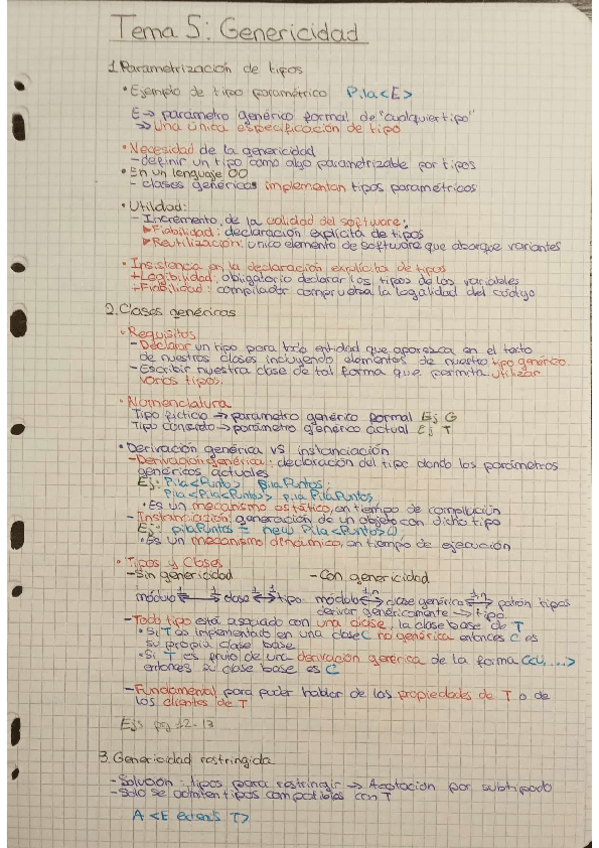 Tema 5: Genericidad
1. Parametrización de tipos
• Ejemplo de tipo paramétrico Pila<E>
E → parametro genérico formal de "cualquier tipo"
→ Una única especificación de tipo
• Necesidad de la genericidad
- definir un tipo como algo parametrizable por tipos
• En un lenguaje OO
- clases genéricas implementan tipos paramétricos
• Utilidad:
- Incremento de la calidad del software:
▶ Fiabilidad: declaración explícita de tipos
▶ Reutilización: único elemento de software que abarque variantes
• Insistencia en la declaración explícita de tipos
+ Legibilidad: obligatorio declarar los tipos de las variables
+ Fiabilidad: compilador comprueba la legalidad del código
2. Clases genéricas
• Requisitos
- Declarar un tipo para toda entidad que aparezca en el texto
de nuestras clases incluyendo elementos de nuestro tipo genérico
- Escribir nuestra clase de tal forma que permita utilizar
varios tipos.
• Nomenclatura
Tipo ficticio → parametro genérico formal Ej G
Tipo concreto → parámetro genérico actual Ej T
• Derivación genérica vs instanciación
- Derivación genérica: declaración del tipo dando los parámetros
genéricos actuales
Ej: Pila<Punto> pilaPuntos;
Pila<Pila<Punto>> pilaPilaPuntos
• Es un mecanismo estático, en tiempo de compilación
- Instanciación: generación de un objeto con dicho tipo
Ej: pilaPuntos = new Pila<Punto>();
• Es un mecanismo dinámico, en tiempo de ejecución
• Tipos y Clases
- Sin genericidad - Con genericidad
módulo ⟷ clase ⟷ tipo módulo ⟷ clase genérica ⟷ patrón tipos
derivar genéricamente → tipo
- Todo tipo está asociado con una clase, la clase base de T
• Si T es implementado en una clase C no genérica entonces C es
su propia clase base
• Si T es fruto de una derivación genérica de la forma C<U,...>
entonces su clase base es C
- Fundamental para poder hablar de las propiedades de T o de
los clientes de T
Ejs pg 12-13
3. Genericidad restringida
- Solución: tipos para restringir → Aceptación por subtipado
- Solo se admiten tipos compatibles con T
A <E extends T>